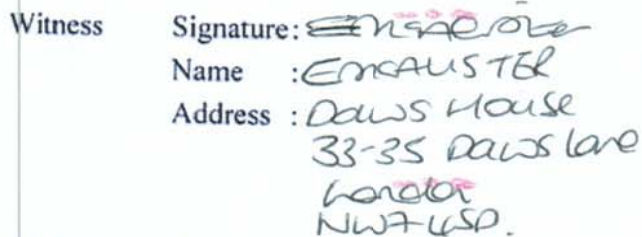 Witness Signature:
Name : EMCALISTER
Address : Daws House
33-35 Daws Lane
London
NW7 4SD.